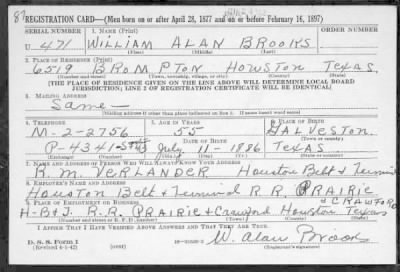 REGISTRATION CARD—(Men born on or after April 28, 1877 and on or before February 16, 1897)
SERIAL NUMBER 1. NAME (Print) ORDER NUMBER
U 471 WILLIAM ALAN BROOKS
(First) (Middle) (Last)
2. PLACE OF RESIDENCE (Print)
6519 BROMPTON HOUSTON TEXAS
(Number and street) (Town, township, village, or city) (County) (State)
[THE PLACE OF RESIDENCE GIVEN ON THE LINE ABOVE WILL DETERMINE LOCAL BOARD
JURISDICTION; LINE 2 OF REGISTRATION CERTIFICATE WILL BE IDENTICAL]
3. MAILING ADDRESS
Same—
[Mailing address if other than place indicated on line 2. If same insert word same]
4. TELEPHONE 5. AGE IN YEARS 6. PLACE OF BIRTH
M-2-2756 55 GALVESTON
DATE OF BIRTH
P-4341- July 11-1886 TEXAS
(Exchange) (Number) (Mo.) (Day) (Yr.) (State or country)
7. NAME AND ADDRESS OF PERSON WHO WILL ALWAYS KNOW YOUR ADDRESS
R. M. VERLANDER Houston Belt & Terminal
8. EMPLOYER'S NAME AND ADDRESS
Houston Belt & Terminal R.R. PRAIRIE
& CRAWFORD
9. PLACE OF EMPLOYMENT OR BUSINESS
H-B&T. R.R. PRAIRIE & Crawford Houston, Texas
(Number and street or R. F. D. number) (Town) (County) (State)
I AFFIRM THAT I HAVE VERIFIED ABOVE ANSWERS AND THAT THEY ARE TRUE.
D. S. S. Form 1
(Revised 4-1-42) (over) W. Alan Brooks
(Registrant's signature)